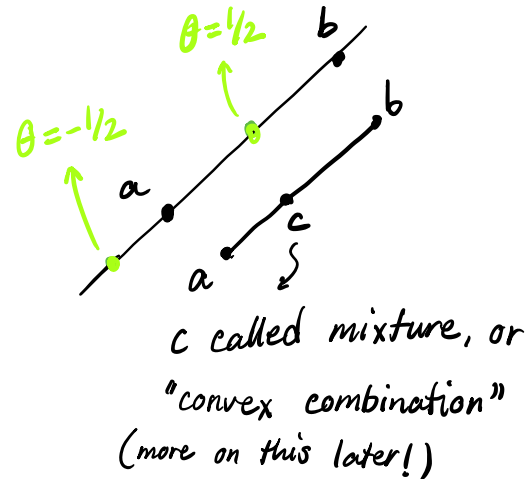 θ=1/2
b
θ=-1/2
a
b
c
a
c called mixture, or
"convex combination"
(more on this later!)